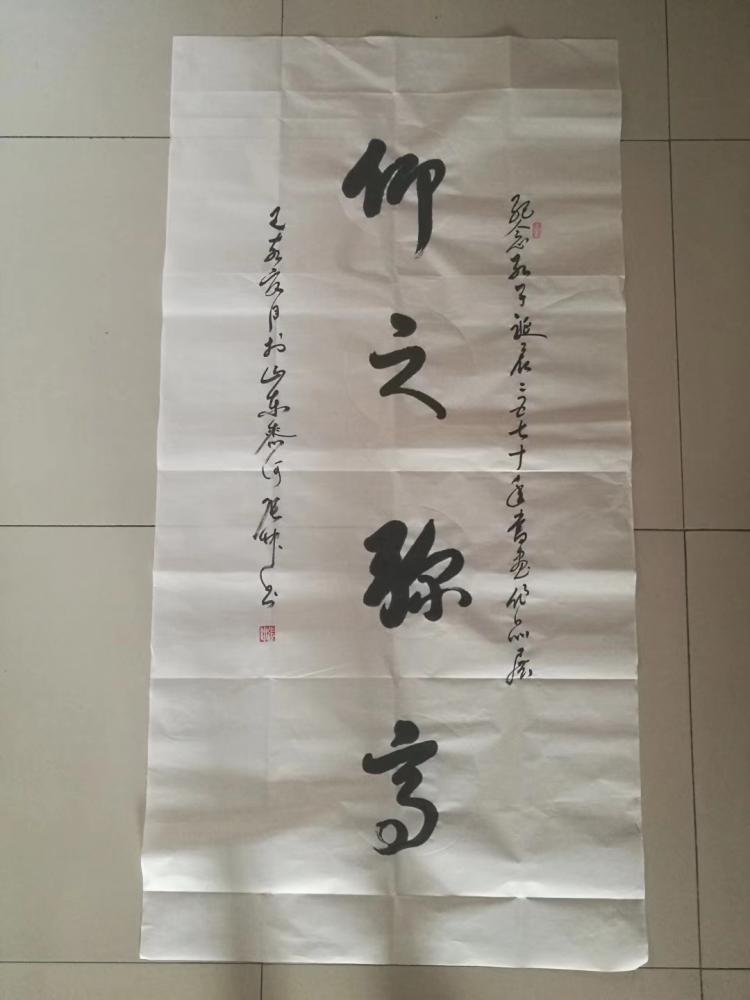 纪念孔子诞辰二五七十年书画作品展
仰之弥高
己亥育月于山东泰河 张林书